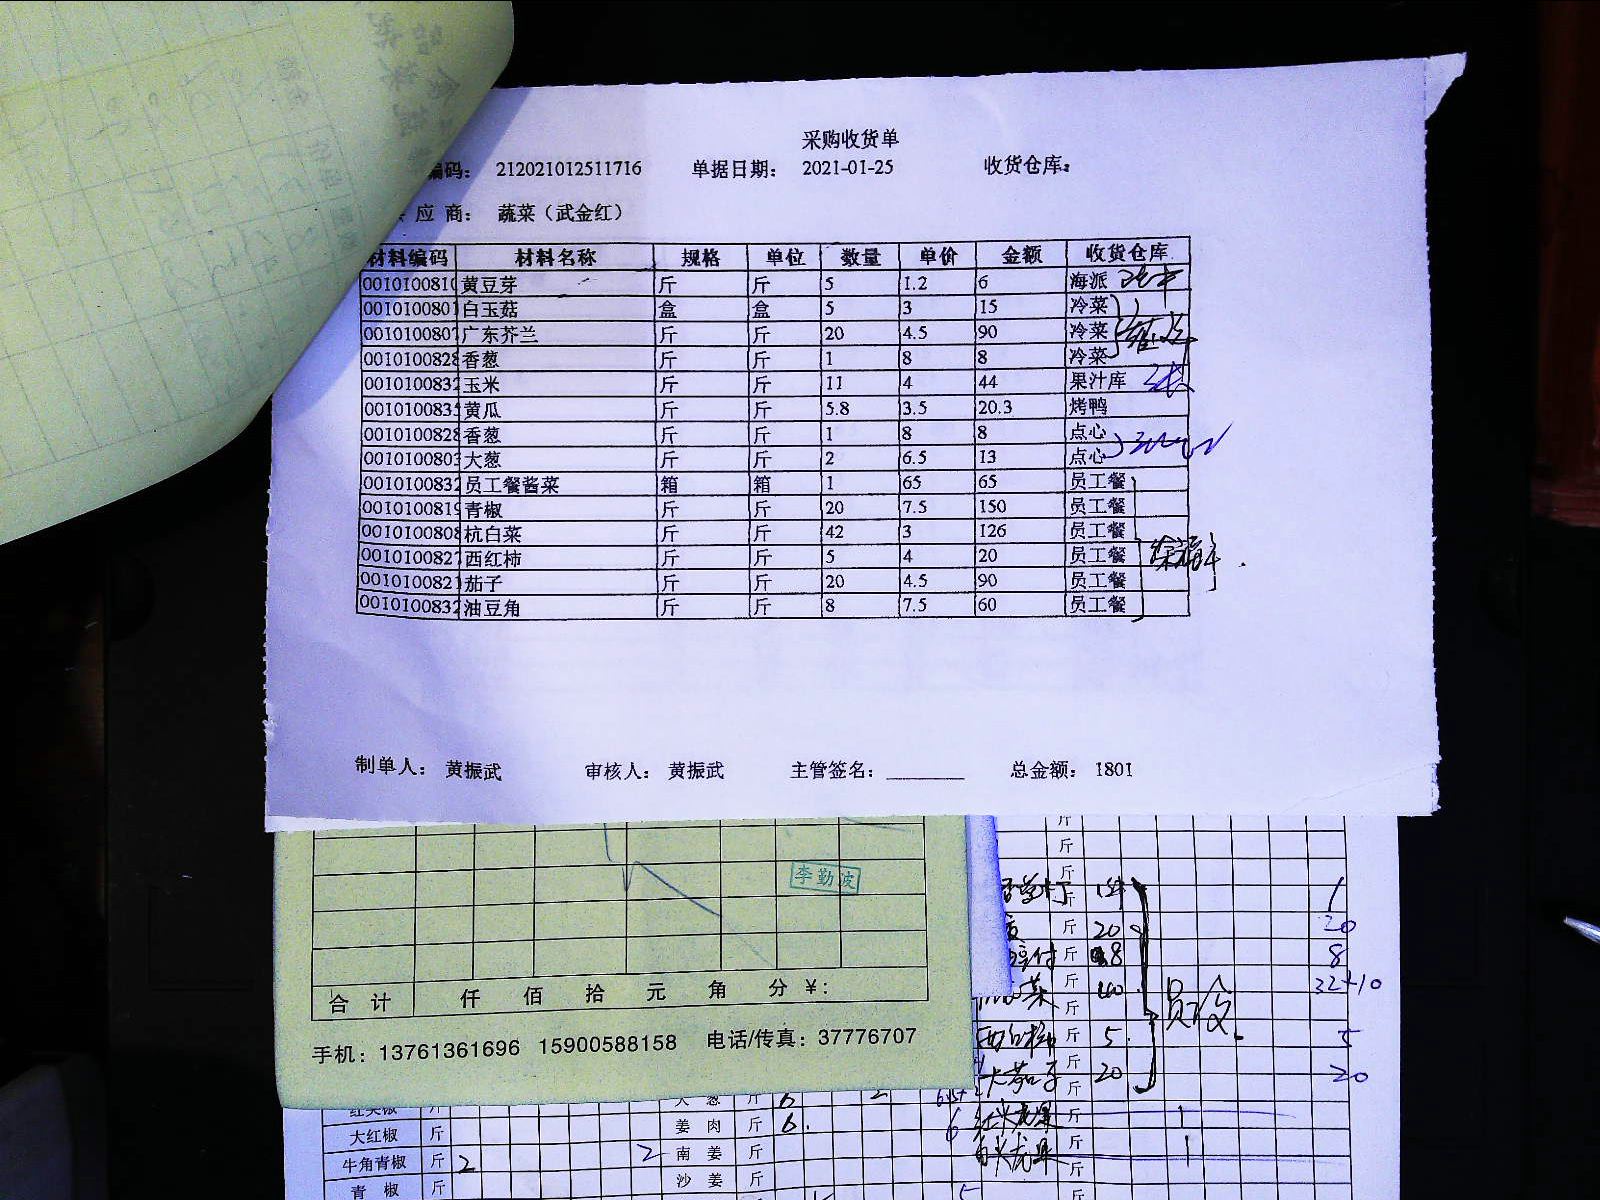 采购收货单
编码： 212021012511716 单据日期： 2021-01-25 收货仓库：
应商： 蔬菜（武金红）
材料编码 材料名称 规格 单位 数量 单价 金额 收货仓库
0010100810 黄豆芽 斤 斤 5 1.2 6 海派
001010080 白玉菇 盒 盒 5 3 15 冷菜
001010080 广东芥兰 斤 斤 20 4.5 90 冷菜
0010100828 香葱 斤 斤 1 8 8 冷菜
001010083 玉米 斤 斤 11 4 44 果汁库
001010083 黄瓜 斤 斤 5.8 3.5 20.3 烤鸭
0010100828 香葱 斤 斤 1 8 8 点心
001010080 大葱 斤 斤 2 6.5 13 点心
001010083 员工餐酱菜 箱 箱 1 65 65 员工餐
001010081 青椒 斤 斤 20 7.5 150 员工餐
0010100808 杭白菜 斤 斤 42 3 126 员工餐
001010082 西红柿 斤 斤 5 4 20 员工餐
001010082 茄子 斤 斤 20 4.5 90 员工餐
001010083 油豆角 斤 斤 8 7.5 60 员工餐
制单人： 黄振武 审核人： 黄振武 主管签名： 总金额： 1801
李勤波
合计 仟 佰 拾 元 角 分 ¥：
手机：13761361696 15900588158 电话/传真：37776707
斤
斤
斤 1
斤 20 20
斤 8 8
菜 斤 40 32+10
斤
斤 5 5
茄子 斤 20 20
斤
红尖椒 斤 大葱 斤 6 2
大红椒 斤 姜肉 斤 6 6 红火龙果 斤 1
牛角青椒 斤 2 2 南姜 斤 白火龙果 斤 1
青椒 斤 沙姜 斤 斤